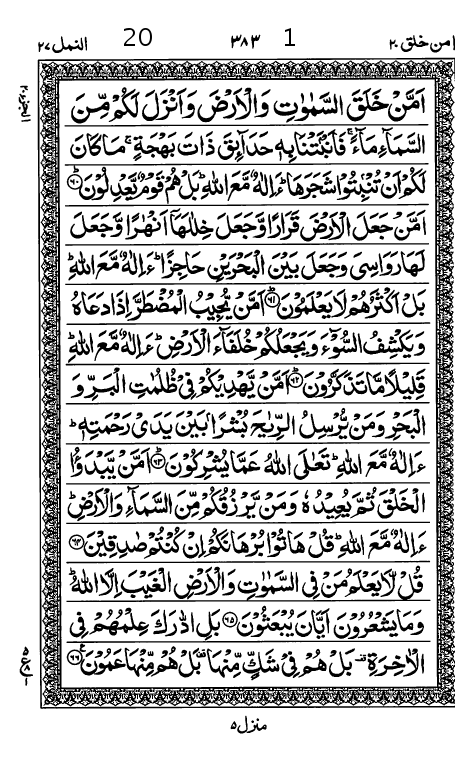 امن خلق ٢٠ 1 ٣٨٣ 20 النمل ٢٧
اَمَّنْ خَلَقَ السَّمٰوٰتِ وَالْاَرْضَ وَاَنْزَلَ لَكُمْ مِّنَ
السَّمَآءِ مَآءً ۚ فَاَنْۢبَتْنَا بِهٖ حَدَآئِقَ ذَاتَ بَهْجَةٍ ۚ مَا كَانَ
لَكُمْ اَنْ تُنْۢبِتُوْا شَجَرَهَا ؕ ءَاِلٰهٌ مَّعَ اللّٰهِ ؕ بَلْ هُمْ قَوْمٌ يَّعْدِلُوْنَ ﴿٦٠﴾
اَمَّنْ جَعَلَ الْاَرْضَ قَرَارًا وَّجَعَلَ خِلٰلَهَآ اَنْهٰرًا وَّجَعَلَ
لَهَا رَوَاسِيَ وَجَعَلَ بَيْنَ الْبَحْرَيْنِ حَاجِزًا ؕ ءَاِلٰهٌ مَّعَ اللّٰهِ ؕ
بَلْ اَكْثَرُهُمْ لَا يَعْلَمُوْنَ ﴿٦١﴾ اَمَّنْ يُّجِيْبُ الْمُضْطَرَّ اِذَا دَعَاهُ
وَيَكْشِفُ السُّوْٓءَ وَيَجْعَلُكُمْ خُلَفَآءَ الْاَرْضِ ؕ ءَاِلٰهٌ مَّعَ اللّٰهِ ؕ
قَلِيْلًا مَّا تَذَكَّرُوْنَ ﴿٦٢﴾ اَمَّنْ يَّهْدِيْكُمْ فِيْ ظُلُمٰتِ الْبَرِّ وَ
الْبَحْرِ وَمَنْ يُّرْسِلُ الرِّيٰحَ بُشْرًۢا بَيْنَ يَدَيْ رَحْمَتِهٖ ؕ
ءَاِلٰهٌ مَّعَ اللّٰهِ ؕ تَعٰلَى اللّٰهُ عَمَّا يُشْرِكُوْنَ ﴿٦٣﴾ اَمَّنْ يَّبْدَؤُا
الْخَلْقَ ثُمَّ يُعِيْدُهٗ وَمَنْ يَّرْزُقُكُمْ مِّنَ السَّمَآءِ وَالْاَرْضِ ؕ
ءَاِلٰهٌ مَّعَ اللّٰهِ ؕ قُلْ هَاتُوْا بُرْهَانَكُمْ اِنْ كُنْتُمْ صٰدِقِيْنَ ﴿٦٤﴾
قُلْ لَّا يَعْلَمُ مَنْ فِي السَّمٰوٰتِ وَالْاَرْضِ الْغَيْبَ اِلَّا اللّٰهُ ؕ
وَمَا يَشْعُرُوْنَ اَيَّانَ يُبْعَثُوْنَ ﴿٦٥﴾ بَلِ ادّٰرَكَ عِلْمُهُمْ فِي
الْاٰخِرَةِ ۟ بَلْ هُمْ فِيْ شَكٍّ مِّنْهَا ۟ بَلْ هُمْ مِّنْهَا عَمُوْنَ ﴿٦٦﴾
منزل ٥